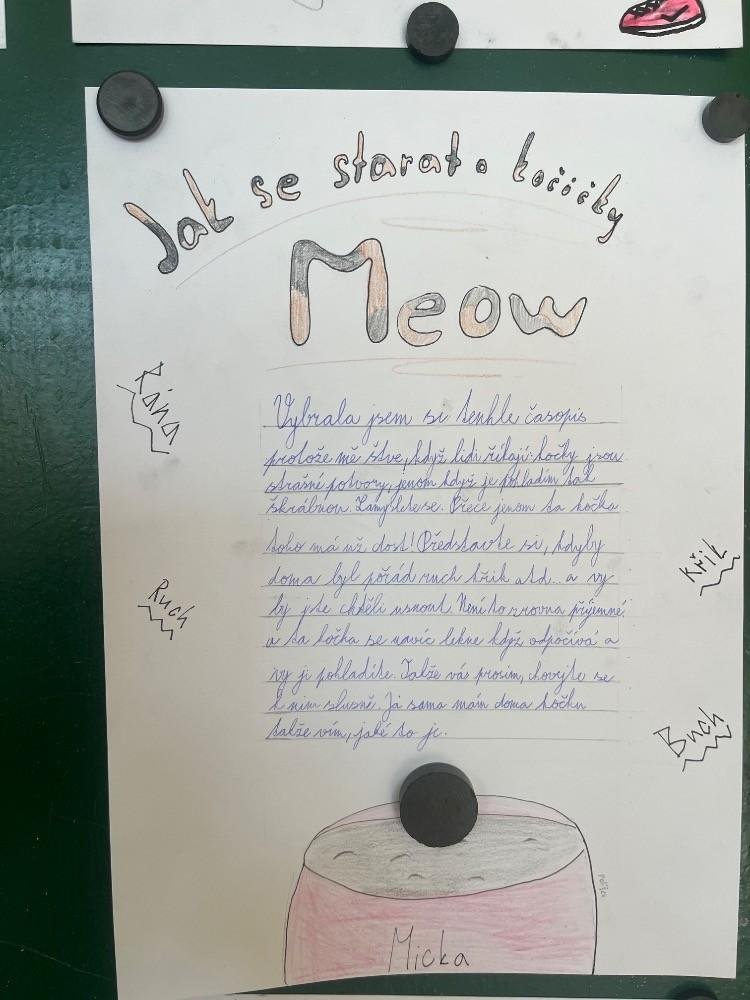 Jak se starat o kočičky
Meow
Rána
Vybrala jsem si tenhle časopis
protože mě štve, když lidi říkají: kočky jsou
strašné potvory, jenom když je pohladím tak
škrábnou. Zamyslete se. Přece jenom ta kočka
toho má už dost! Představte si, kdyby
doma byl pořád ruch křik atd.. a vy
by jste chtěli usnout. Není to zrovna příjemné.
a ta kočka se navíc lekne když odpočívá a
vy ji pohladíte. Takže vás prosím, chovejte se
k nim slušně. Já sama mám doma kočku
takže vím, jaké to je.
Křik
Ruch
Buch
Micka